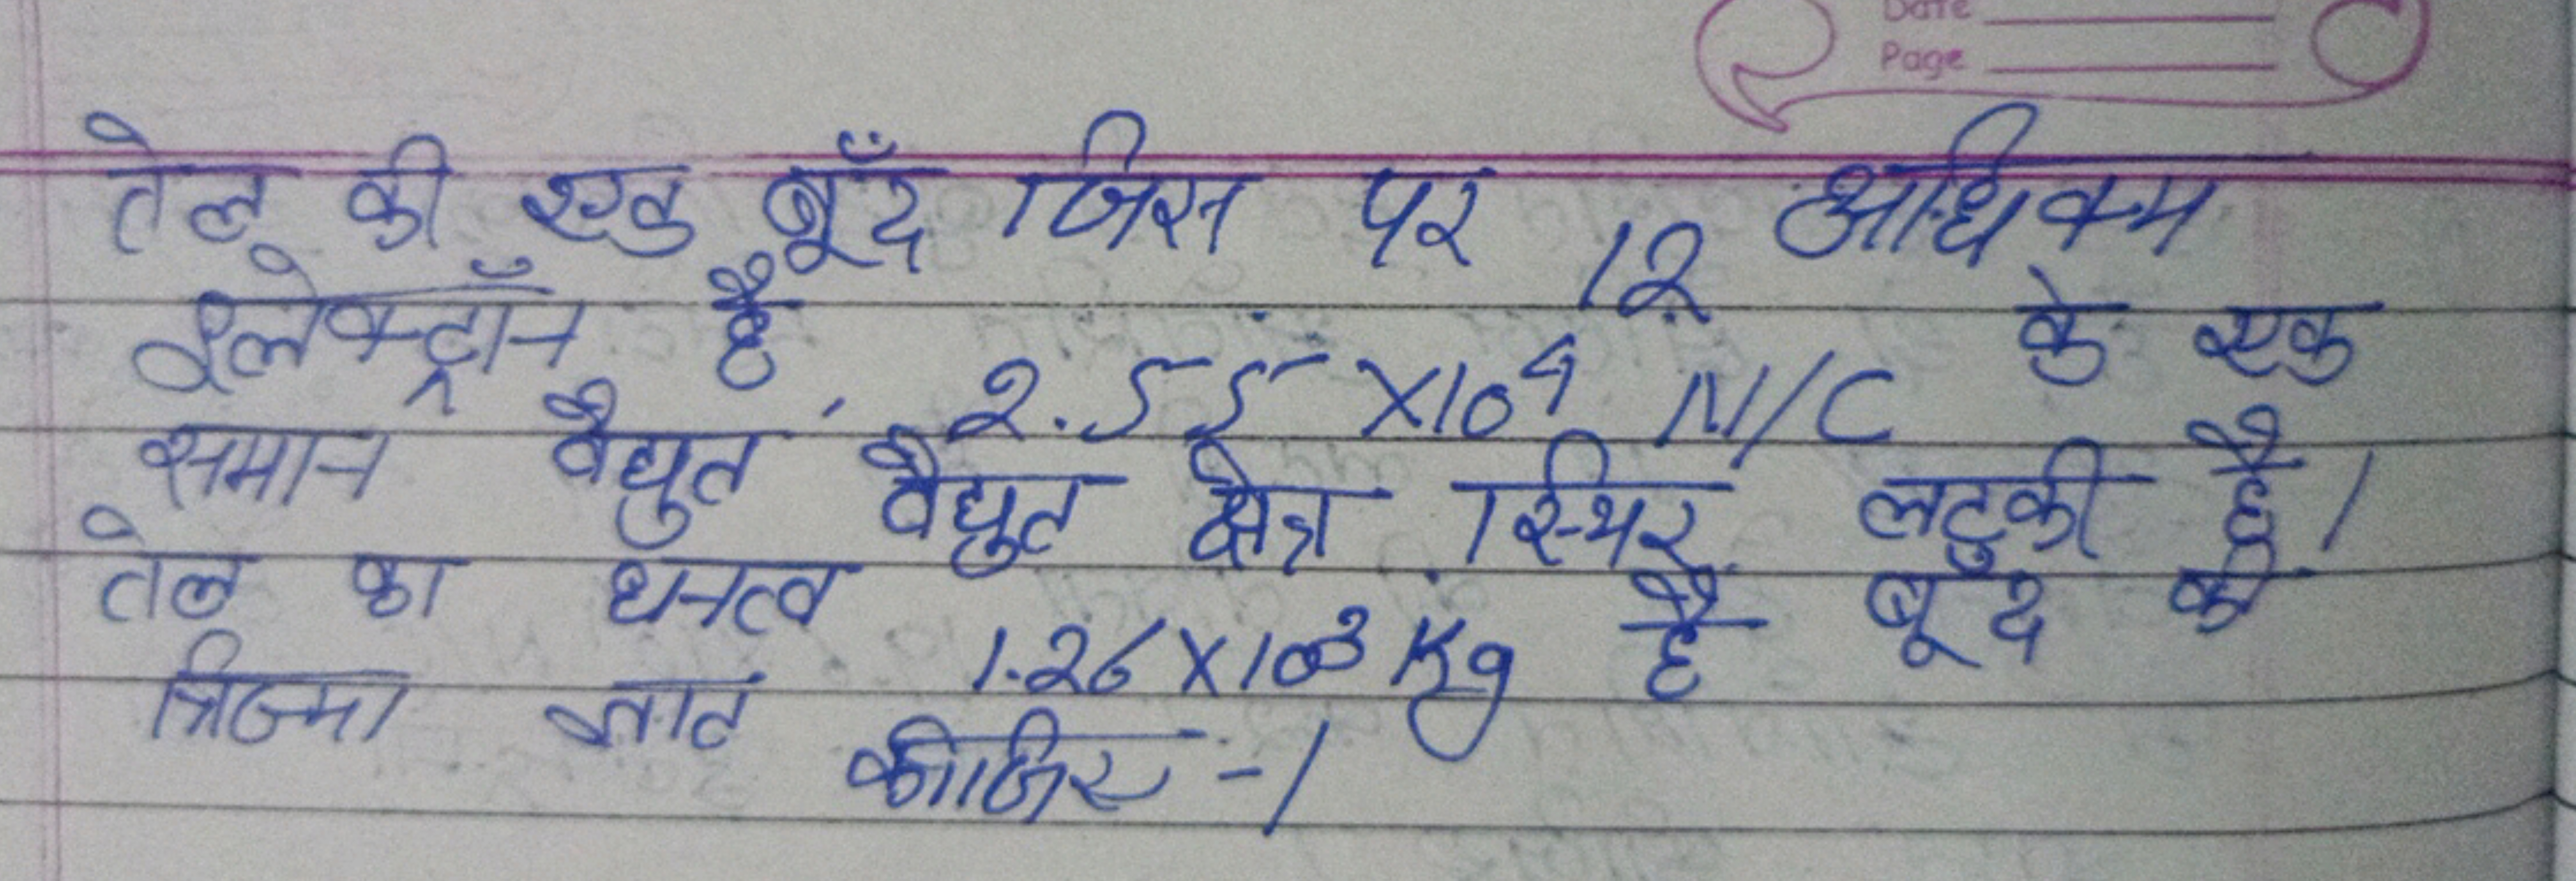 Date
Page
तेल की एक बूँद जिस पर 12 अधिकम
इलेक्ट्रॉन है, 2.55 ×10⁴ N/C के एक
समान वैद्युत वैद्युत क्षेत्र स्थिर लटकी है।
तेल का घनत्व 1.26×10³ Kg है बूद की
त्रिज्या ज्ञात कीजिए -।